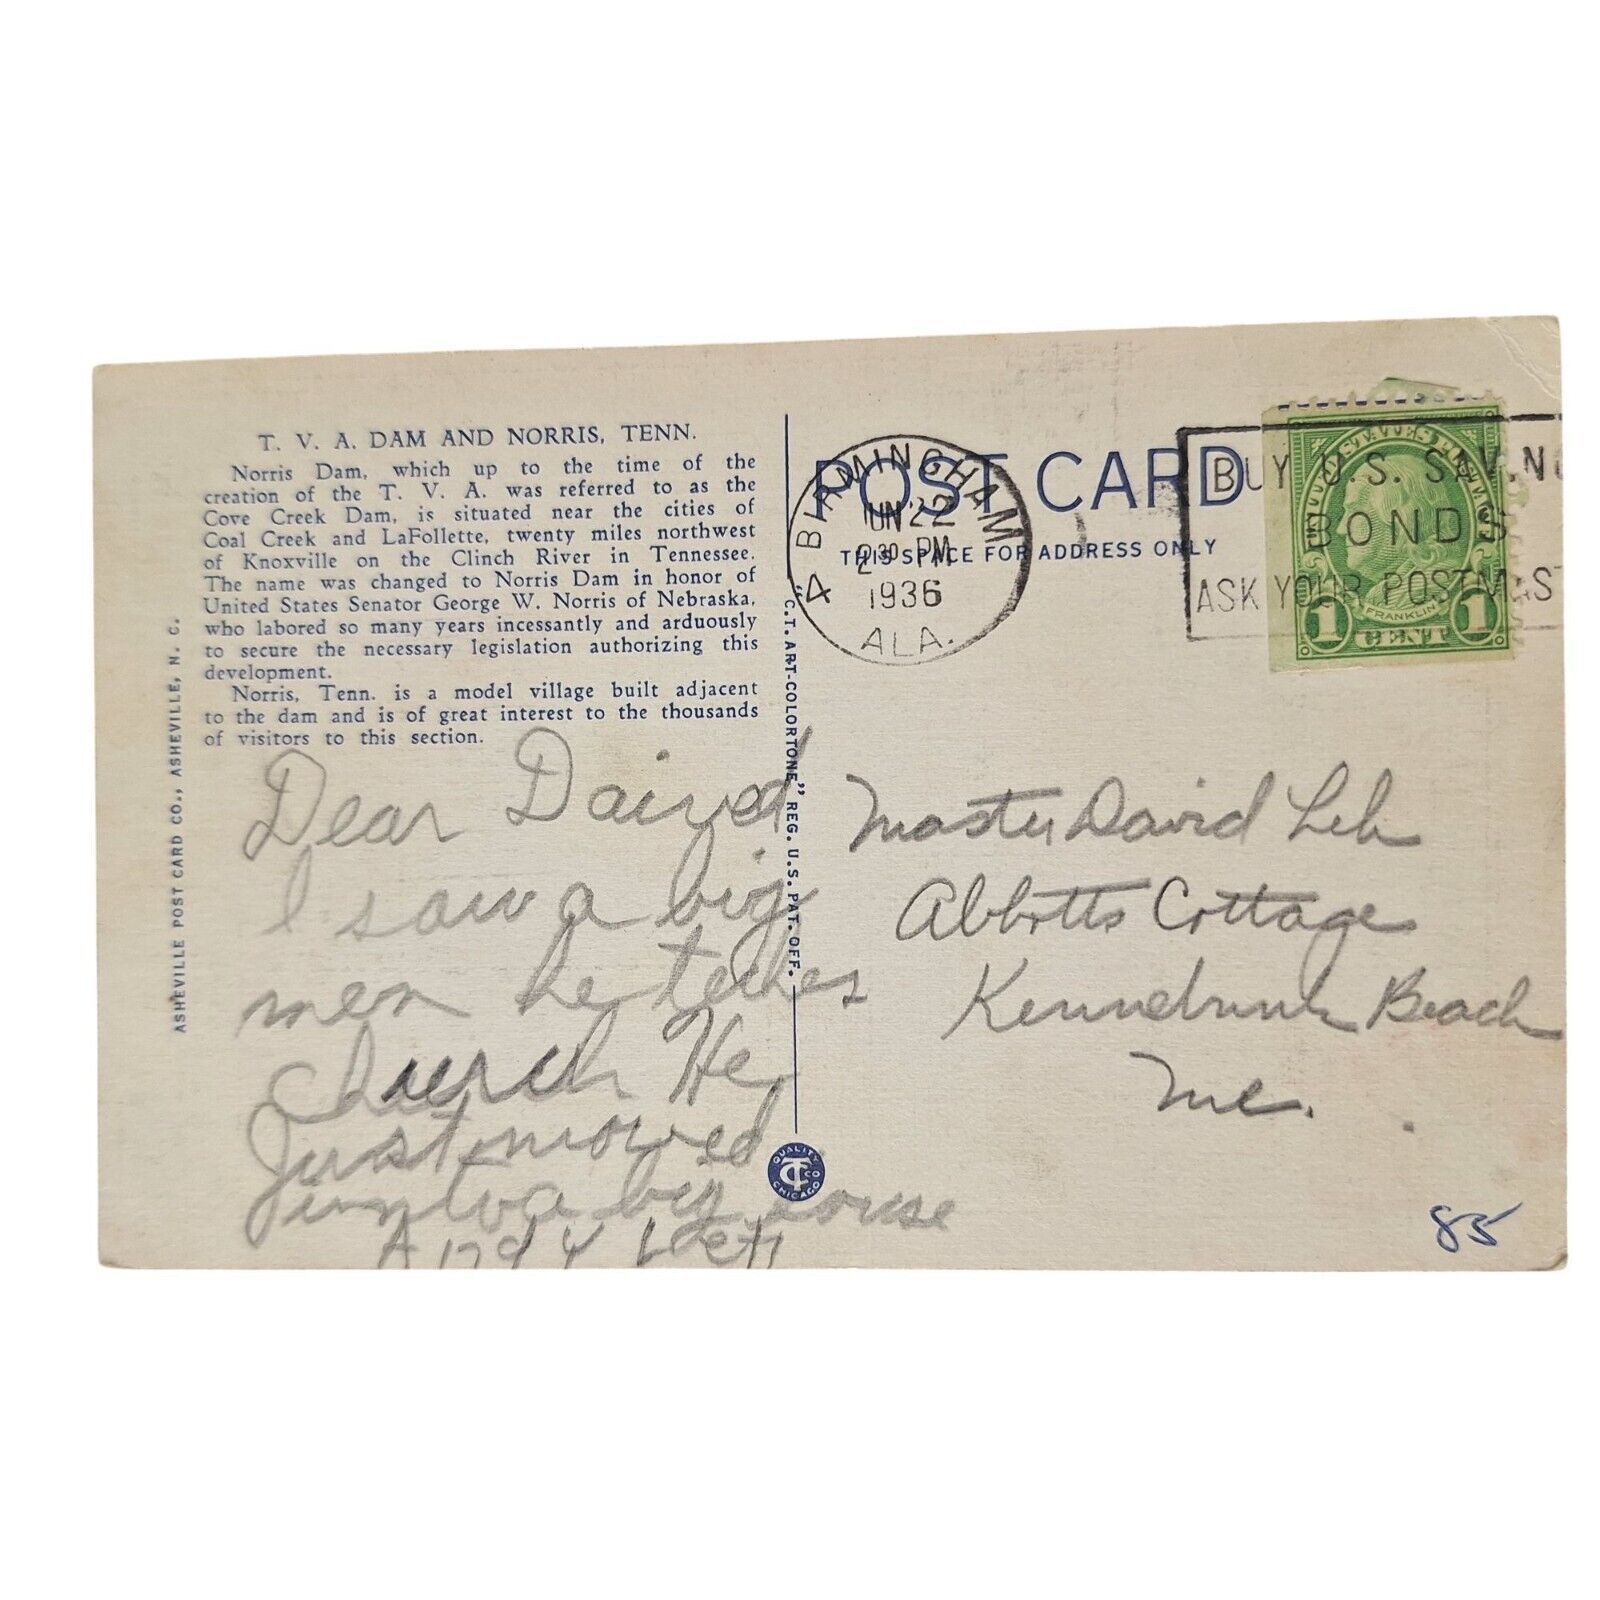 T. V. A. DAM AND NORRIS, TENN.
Norris Dam, which up to the time of the
creation of the T. V. A. was referred to as the
Cove Creek Dam, is situated near the cities of
Coal Creek and LaFollette, twenty miles northwest
of Knoxville on the Clinch River in Tennessee.
The name was changed to Norris Dam in honor of
United States Senator George W. Norris of Nebraska,
who labored so many years incessantly and arduously
to secure the necessary legislation authorizing this
development.
Norris, Tenn. is a model village built adjacent
to the dam and is of great interest to the thousands
of visitors to this section.
ASHEVILLE POST CARD CO., ASHEVILLE, N. C.
Dear Daived
I saw a big
men he teches
Church He
Just moved
into a big house
Andy
"C.T. ART-COLORTONE" REG. U.S. PAT. OFF.
QUALITY
CT CO
CHICAGO
POST CARD
THIS SPACE FOR ADDRESS ONLY
BIRMINGHAM 4
JUN 22
2 30 PM
1936
ALA.
BUY U.S. SAVING
BONDS
ASK YOUR POSTMAST
FRANKLIN
1 CENT 1
Master David
Abbotts Cottage
Kennebunk Beach
Me.
85